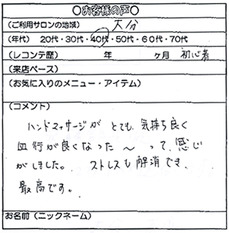 〇お客様の声〇
(ご利用サロンの地域) 大分
(年代) 20代・30代・40代・50代・60代・70代
(レコンテ歴) 年 ヶ月 初心者
(来店ペース)
(お気に入りのメニュー・アイテム)
(コメント)
ハンドマッサージが とても 気持ち良く
血行が良くなった 〜 って、感じ
がしました。 ストレスも 解消でき、
最高です。
お名前(ニックネーム)